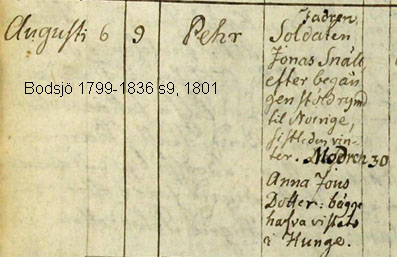 Fadren
Augusti 6 9 Pehr Soldaten
Jonas Snäll,
efter begån-
gen stöld rymd
til Norrige,
sistleden vin-
ter. Modren 30
Anna Jons
Dotter: bägge
hafva vistats
i Hunge.
Bodsjö 1799-1836 s9, 1801